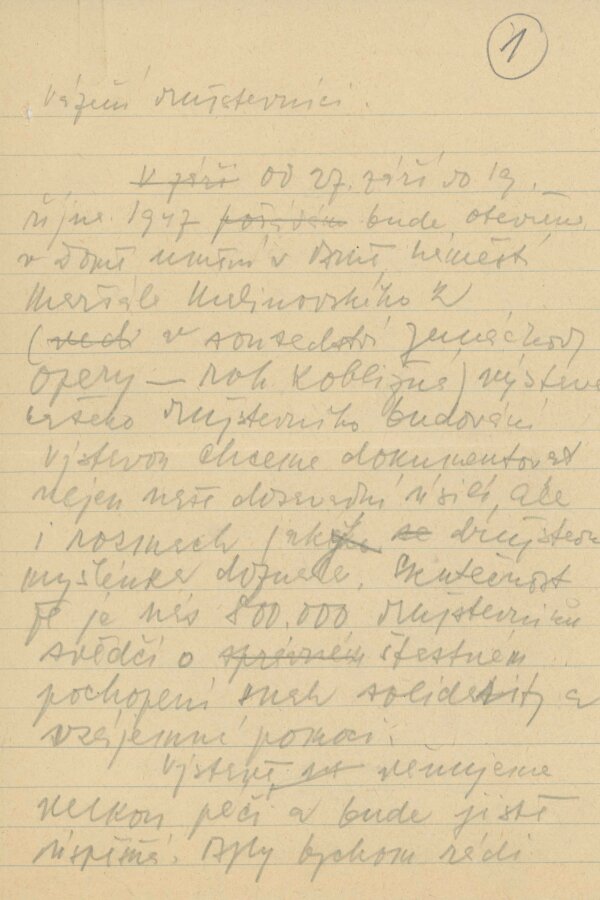 1
Vážení družstevníci.
V září od 27. září do 19.
října 1947 pořádán bude otevřena
v Domě umění v Brně, náměstí
Maršála Malinovského 2
(vedle v sousedství Janáčkovy
opery — roh Kobližná) výstava
našeho družstevního budování
Výstavou chceme dokumentovat
nejen naše dosavadní úsilí, ale
i rozmach družstev
myšlénka doznala. Skutečnost
že je nás 800.000 družstevníků
svědčí o správném šťastném
pochopení snah solidarity a
vzájemné pomoci.
Výstavě věnujeme
velkou péči a bude jistě
úspěšná. Byly bychom rádi